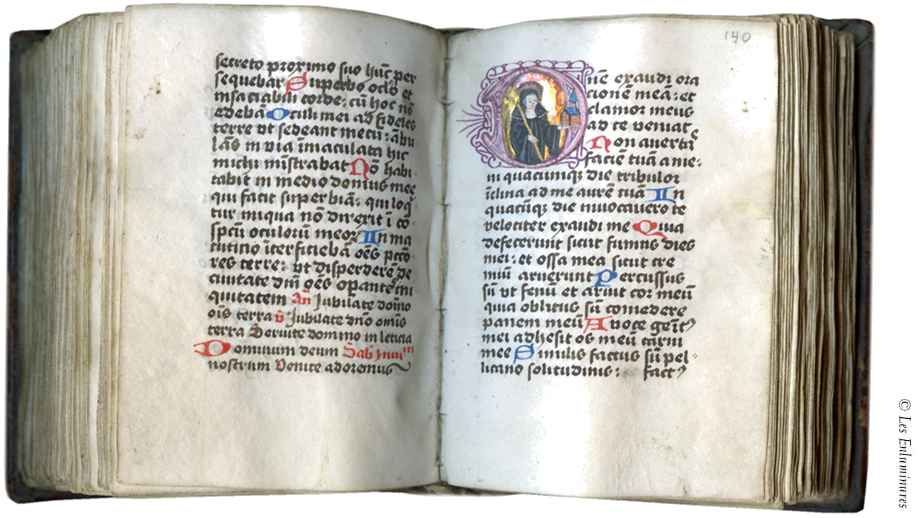 secreto proximo suo hūc per
sequebar Superbo oclō et
insaciabili corde: cū hoc nō
edebā Oculi mei ad fideles
terre vt sedeant mecū: ābu
lās in via īmaculata hic
michi mīstrabat Nō habi
tabit in medio domus mee
qui facit superbiā: qui loq̄
tur iniqua nō direxit ī cō
spcū oculoruм meoꝝ In ma
tutino īterficiebā oēs pctō
res terre: vt disperderē de
ciuitate dnī oēs opantes ini
quitatem an̄ Jubilate domīo
oīs terra v̄ Jubilate dnō omīs
terra Seruite domino in leticia
Dominum deum Sab
nostrum Venite adoremus
140
Dn̄e exaudi ora
cionē meā: et
clamor meus
ad te veniat
Non auertā
faciē tuā a me:
in quacūnqꝫ die tribulor
īclina ad me aurē tuā In
quacūqꝫ die īuocauero te
velociter exaudi me Quia
defecerunt sicut fumus dies
mei: et ossa mea sicut cre
miū aruerunt Percussus
sū vt fenū et aruit cor meū
quia oblitus sū comedere
panem meū A voce gemitꝰ
mei adhesit os meū carni
mee Similis factus sū pel
licano solitudinis: factꝰ
© Les Enluminures